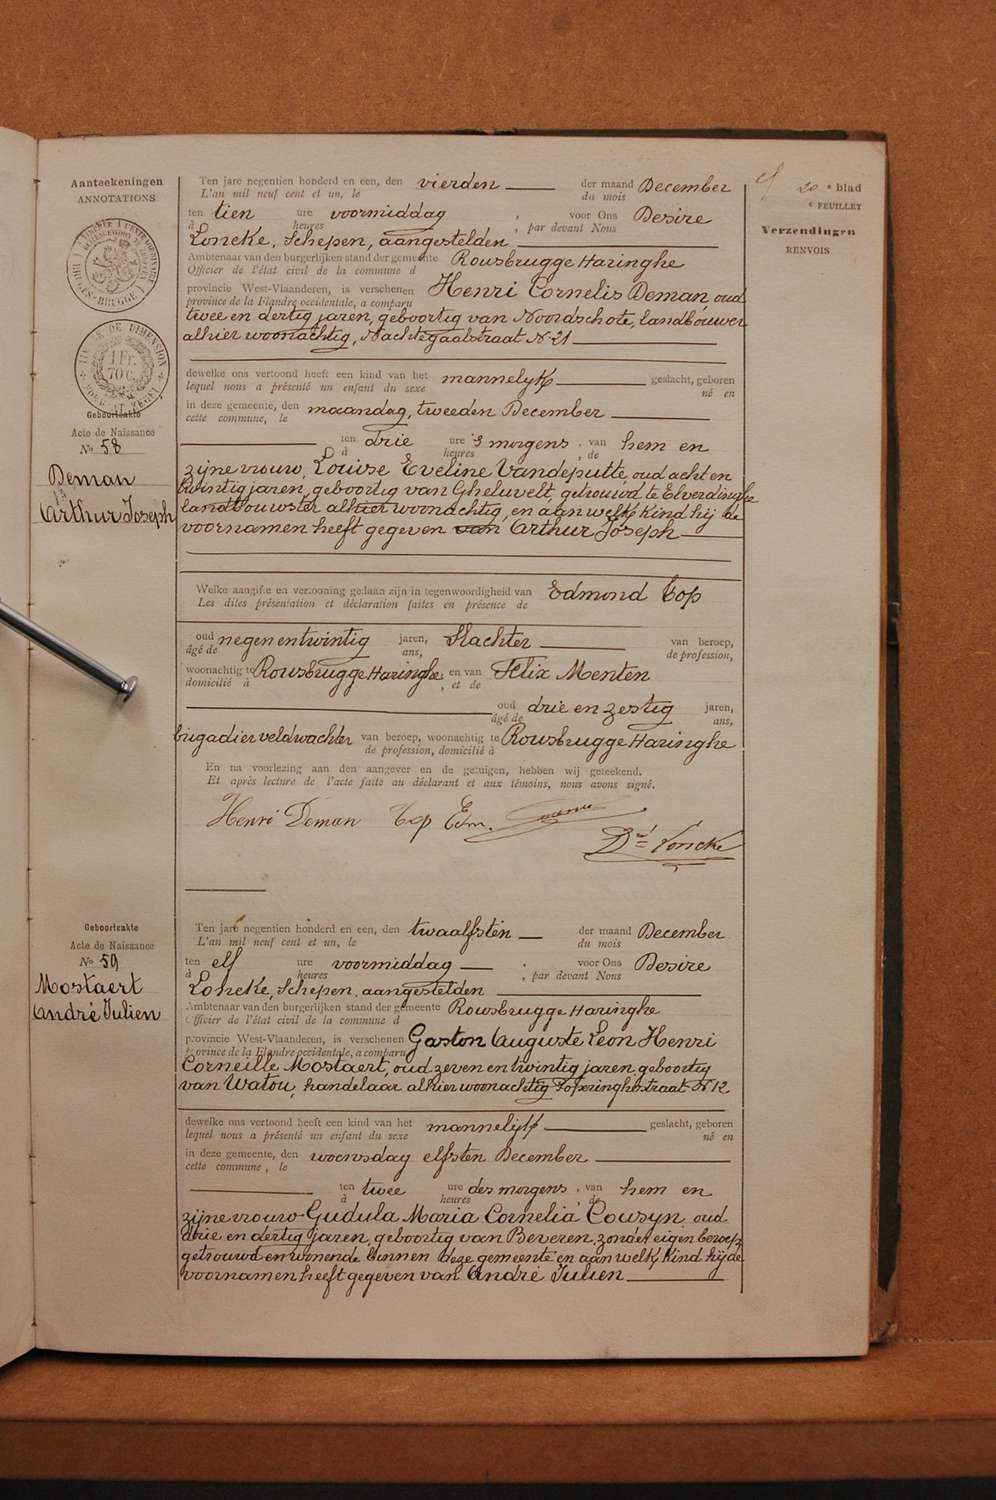 Aanteekeningen
ANNOTATIONS
20e blad
e FEUILLET
Verzendingen
RENVOIS
TIMBRE DE DIMENSION
1 Fr.
70 C.
Geboorteakte
Acte de Naissance
No 58
Deman
Arthur Joseph
Ten jare negentien honderd en een, den vierden der maand December
L'an mil neuf cent et un, le du mois
ten tien ure voormiddag, voor Ons Desire
à heures, par devant Nous
Loncke, Schepen, aangestelden
Ambtenaar van den burgerlijken stand der gemeente Rousbrugge Haringhe
Officier de l'état civil de la commune d
provincie West-Vlaanderen, is verschenen Henri Cornelis Deman, oud
province de la Flandre occidentale, a comparu
twee en dertig jaren, geboortig van Noordschote, landbouwer
alhier woonachtig, Nachtegaalstraat N 21
dewelke ons vertoond heeft een kind van het mannelyk geslacht, geboren
lequel nous a présenté un enfant du sexe né en
in deze gemeente, den maandag, tweeden December
cette commune, le
ten drie ure 's morgens, van hem en
à heures, de
zijne vrouw, Louise Eveline Vandeputte, oud acht en
twintig jaren, geboortig van Gheluvelt, getrouwd te Elverdinghe
landbouwster alhier woonachtig, en aan welk kind hij de
voornamen heeft gegeven van Arthur Joseph
Welke aangifte en vertooning gedaan zijn in tegenwoordigheid van Edmond Top
Les dites présentation et déclaration faites en présence de
oud negenentwintig jaren, Slachter van beroep,
âgé de ans, de profession,
woonachtig te Rousbrugge Haringhe en van Felix Menten
domicilié à, et de
oud drie en zestig jaren,
âgé de ans,
brigadier veldwachter van beroep, woonachtig te Rousbrugge Haringhe
de profession, domicilié à
En na voorlezing aan den aangever en de getuigen, hebben wij geteekend.
Et après lecture de l'acte faite au déclarant et aux témoins, nous avons signé.
Henri Deman Top Edm.
Dé Loncke
Geboorteakte
Acte de Naissance
No 59
Mostaert
André Julien
Ten jare negentien honderd en een, den twaalfsten der maand December
L'an mil neuf cent et un, le du mois
ten elf ure voormiddag, voor Ons Desire
à heures, par devant Nous
Loncke, Schepen, aangestelden
Ambtenaar van den burgerlijken stand der gemeente Rousbrugge Haringhe
Officier de l'état civil de la commune d
provincie West-Vlaanderen, is verschenen Gaston Auguste Leon Henri
province de la Flandre occidentale, a comparu
Corneille Mostaert, oud zeven en twintig jaren, geboortig
van Watou, handelaar alhier woonachtig Poperinghestraat N 12
dewelke ons vertoond heeft een kind van het mannelyk geslacht, geboren
lequel nous a présenté un enfant du sexe né en
in deze gemeente, den woensdag elfsten December
cette commune, le
ten twee ure des morgens, van hem en
à heures de
zijne vrouw Gudula Maria Cornelia Cousyn, oud
drie en dertig jaren, geboortig van Beveren, zonder eigen beroep,
getrouwd en wonende binnen deze gemeente en aan welk kind hij de
voornamen heeft gegeven van André Julien